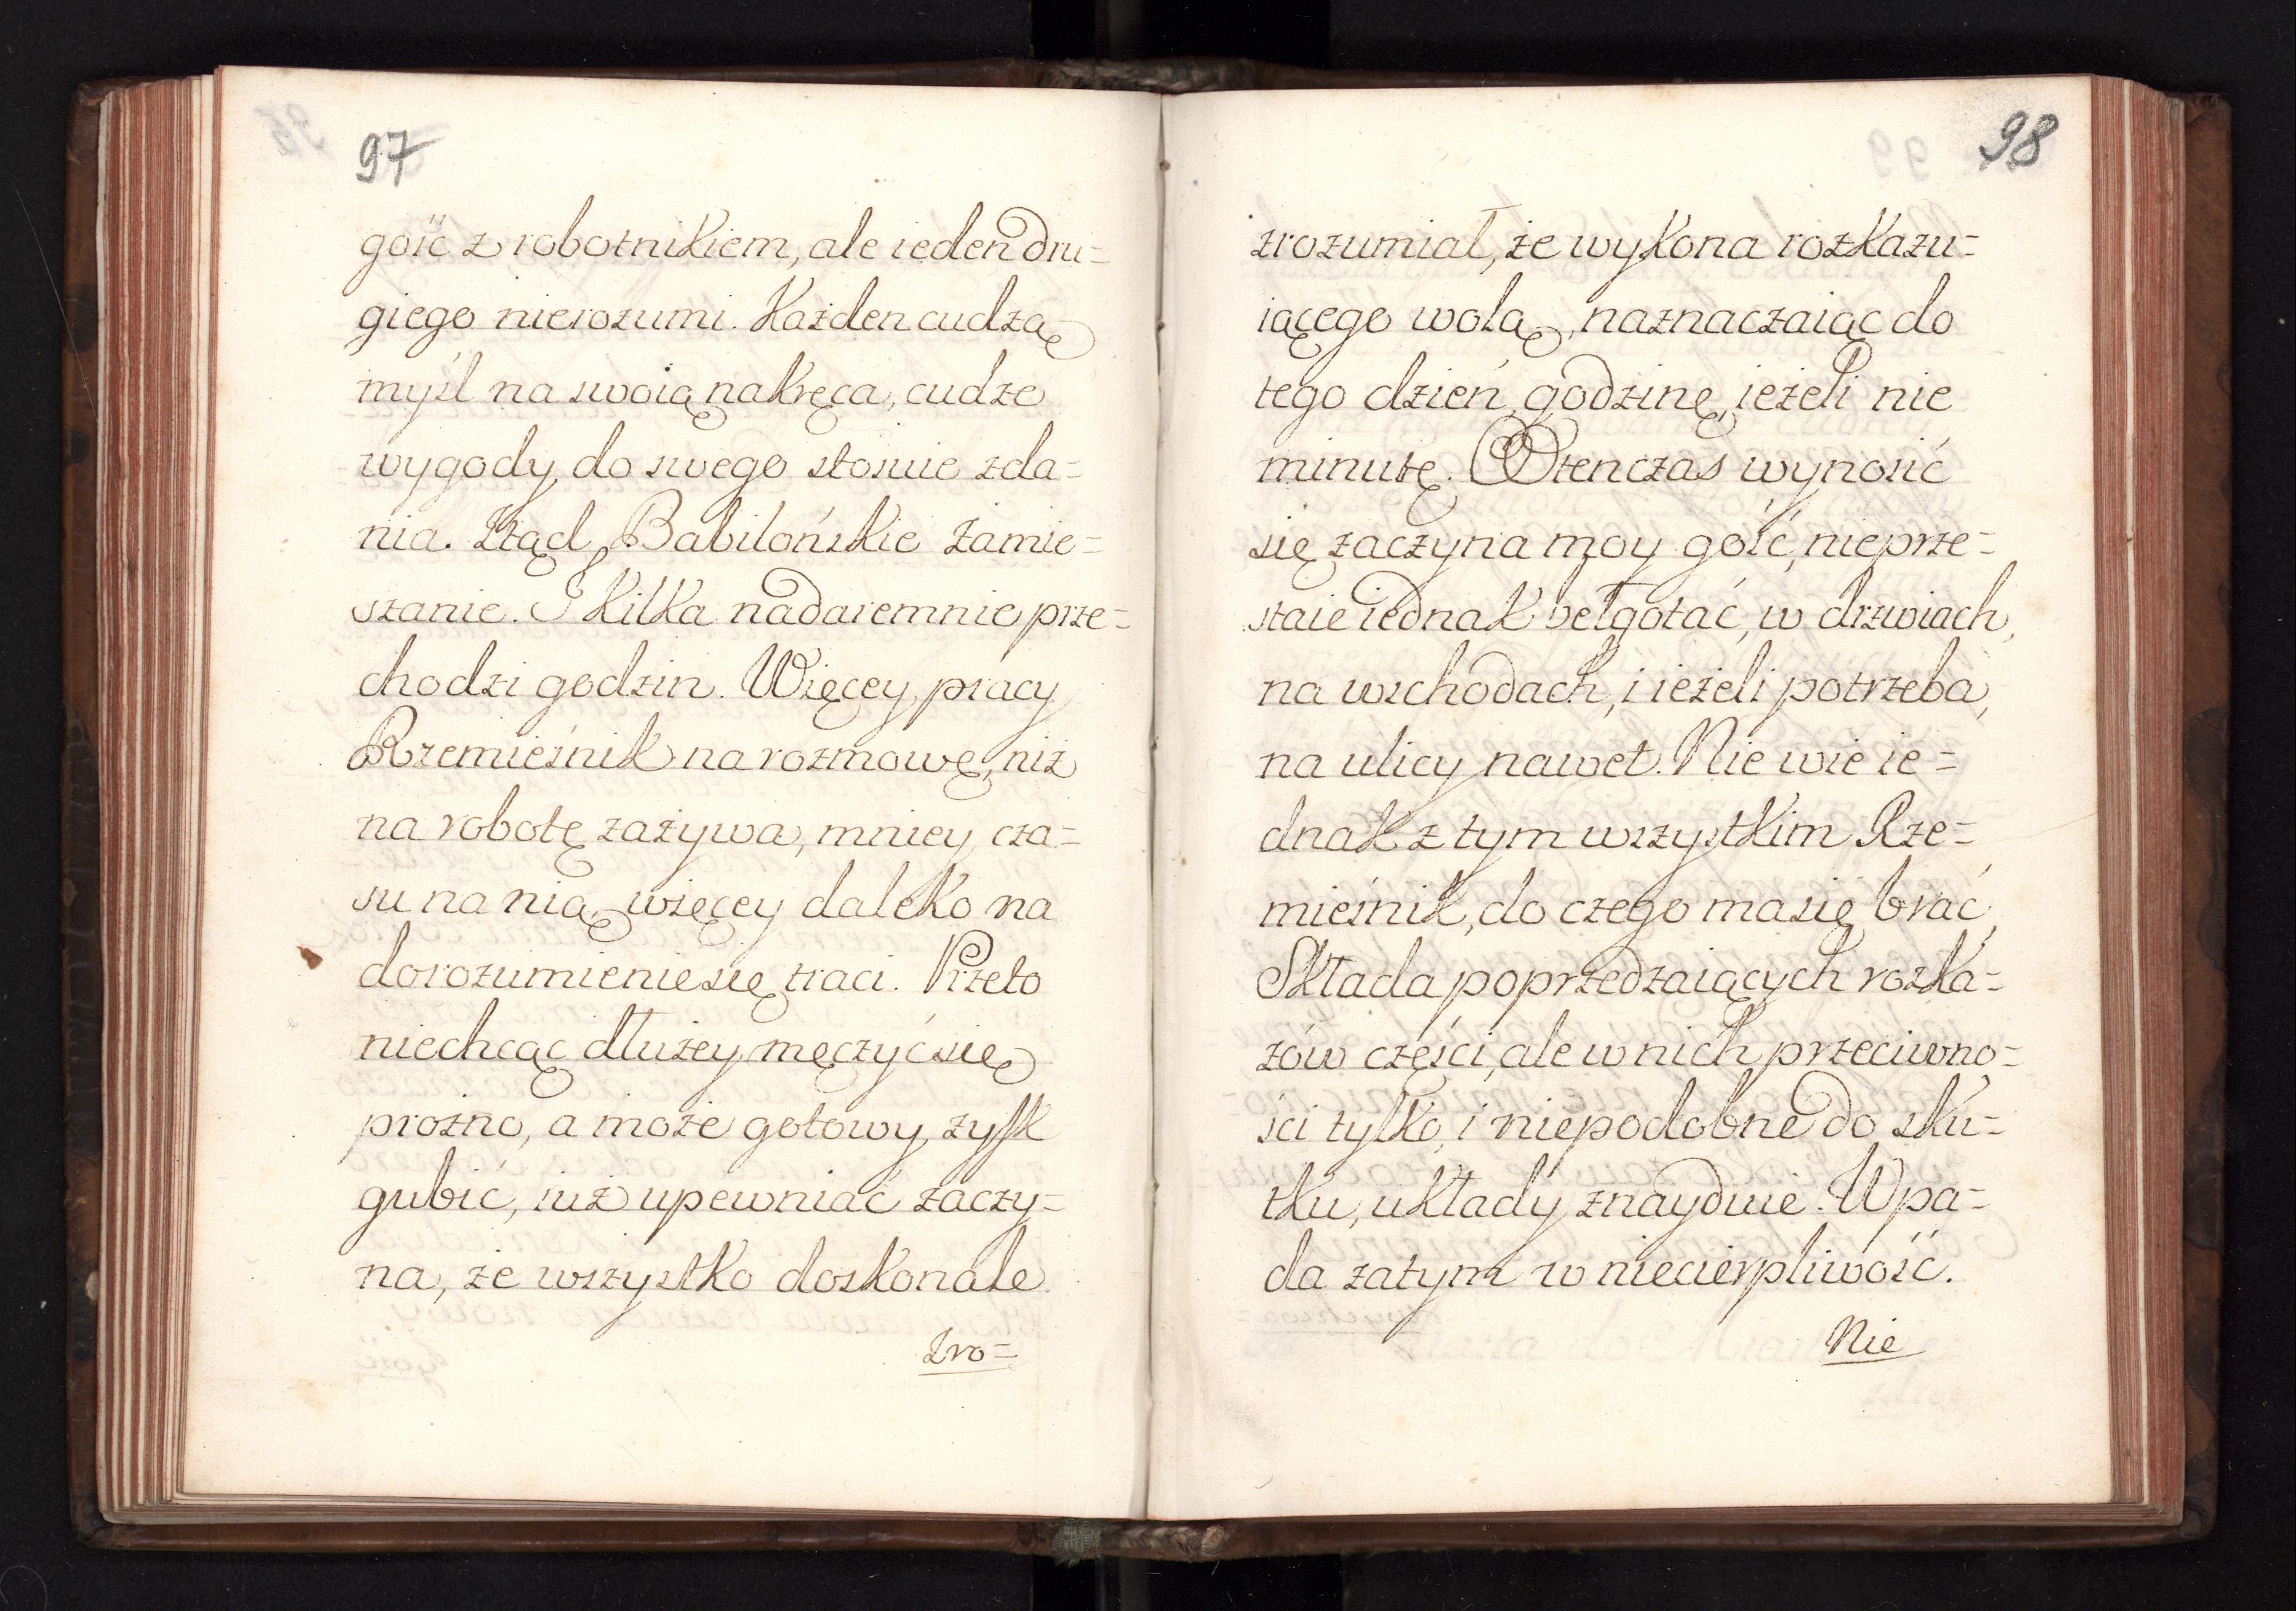 97
gość z robotnikiem, ale ieden dru=
giego nierozumi. Każden cudzą
myśl na swoię nakręca, cudze
wygody, do swego stosuie zda=
nia. Ztąd, Babilońskie zamie=
szanie. I kilka nadaremnie prze=
chodzi godzin. Więcey, pracy
Rzemieśnik na rozmowę, niż
na robotę zażywa, mniey cza=
su na nią, więcey daleko na
dorozumienie się traci. Przeto
niechcąc dłużey męczyć się
prożno, a może gotowy, zysk
gubić, iuż upewniać zaczy=
na, że wszystko doskonale
zro=
98
zrozumiał, że wykona rozkazu=
iącego wolą, naznaczaiąc do
tego dzień, godzinę, ieżeli nie
minutę. Otenczas wynosić
się zaczyna moy gość, nieprze=
staie iednak bełgotać, w drzwiach,
na wschodach, i ieżeli potrzeba,
na ulicy nawet. Nie wie ie=
dnak z tym wszystkim Rze=
mieśnik, do czego ma się brać,
Składa poprzedzaiących rozka=
zów części, ale w nich przeciwno=
ści tylko, i niepodobne do sku=
tku, układy znayduie. Wpa=
da zatym w niecierpliwość.
Nie